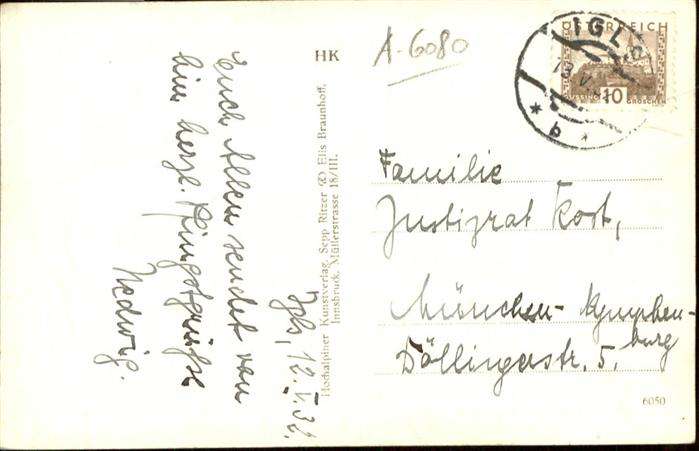 Igls, 12.V.32.
Euch Allen sendet von
hier herzl. Pfingstgrüße
Hedwig.
HK
Hochalpiner Kunstverlag, Sepp Ritzer & Elis Braunhoff,
Innsbruck, Müllerstrasse 18/III.
A-6080
ÖSTERREICH
GÜSSING 10 GROSCHEN
IGLS
* b *
Familie
Justizrat Kort,
München-Nymphen-
burg
Döllingerstr. 5,
6050